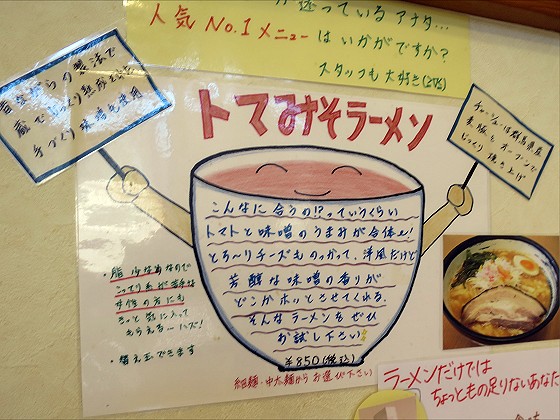 が迷っているアナタ…
人気 No.1 メニューはいかがですか?
スタッフも大好き(2位)
昔ながらの製法で
蔵でじっくり熟成させた
手づくり味噌を使用
トマみそラーメン
チャーシューは群馬県産
オーブンで
じっくり焼き上げ
こんなに合うの!?っていうくらい
トマトと味噌のうまみが合体!
とろ〜りチーズものっかって、洋風だけど
芳醇な味噌の香りが
どこかホッとさせてくれる、
そんなラーメンをぜひ
お試し下さい!
¥850(税込)
細麺・中太麺からお選び下さい
・脂少な目なので
こってり系が苦手な
女性の方にも
きっと気に入って
もらえるーハズ!
・替え玉できます
ラーメンだけでは
ちょっともの足りないあなた